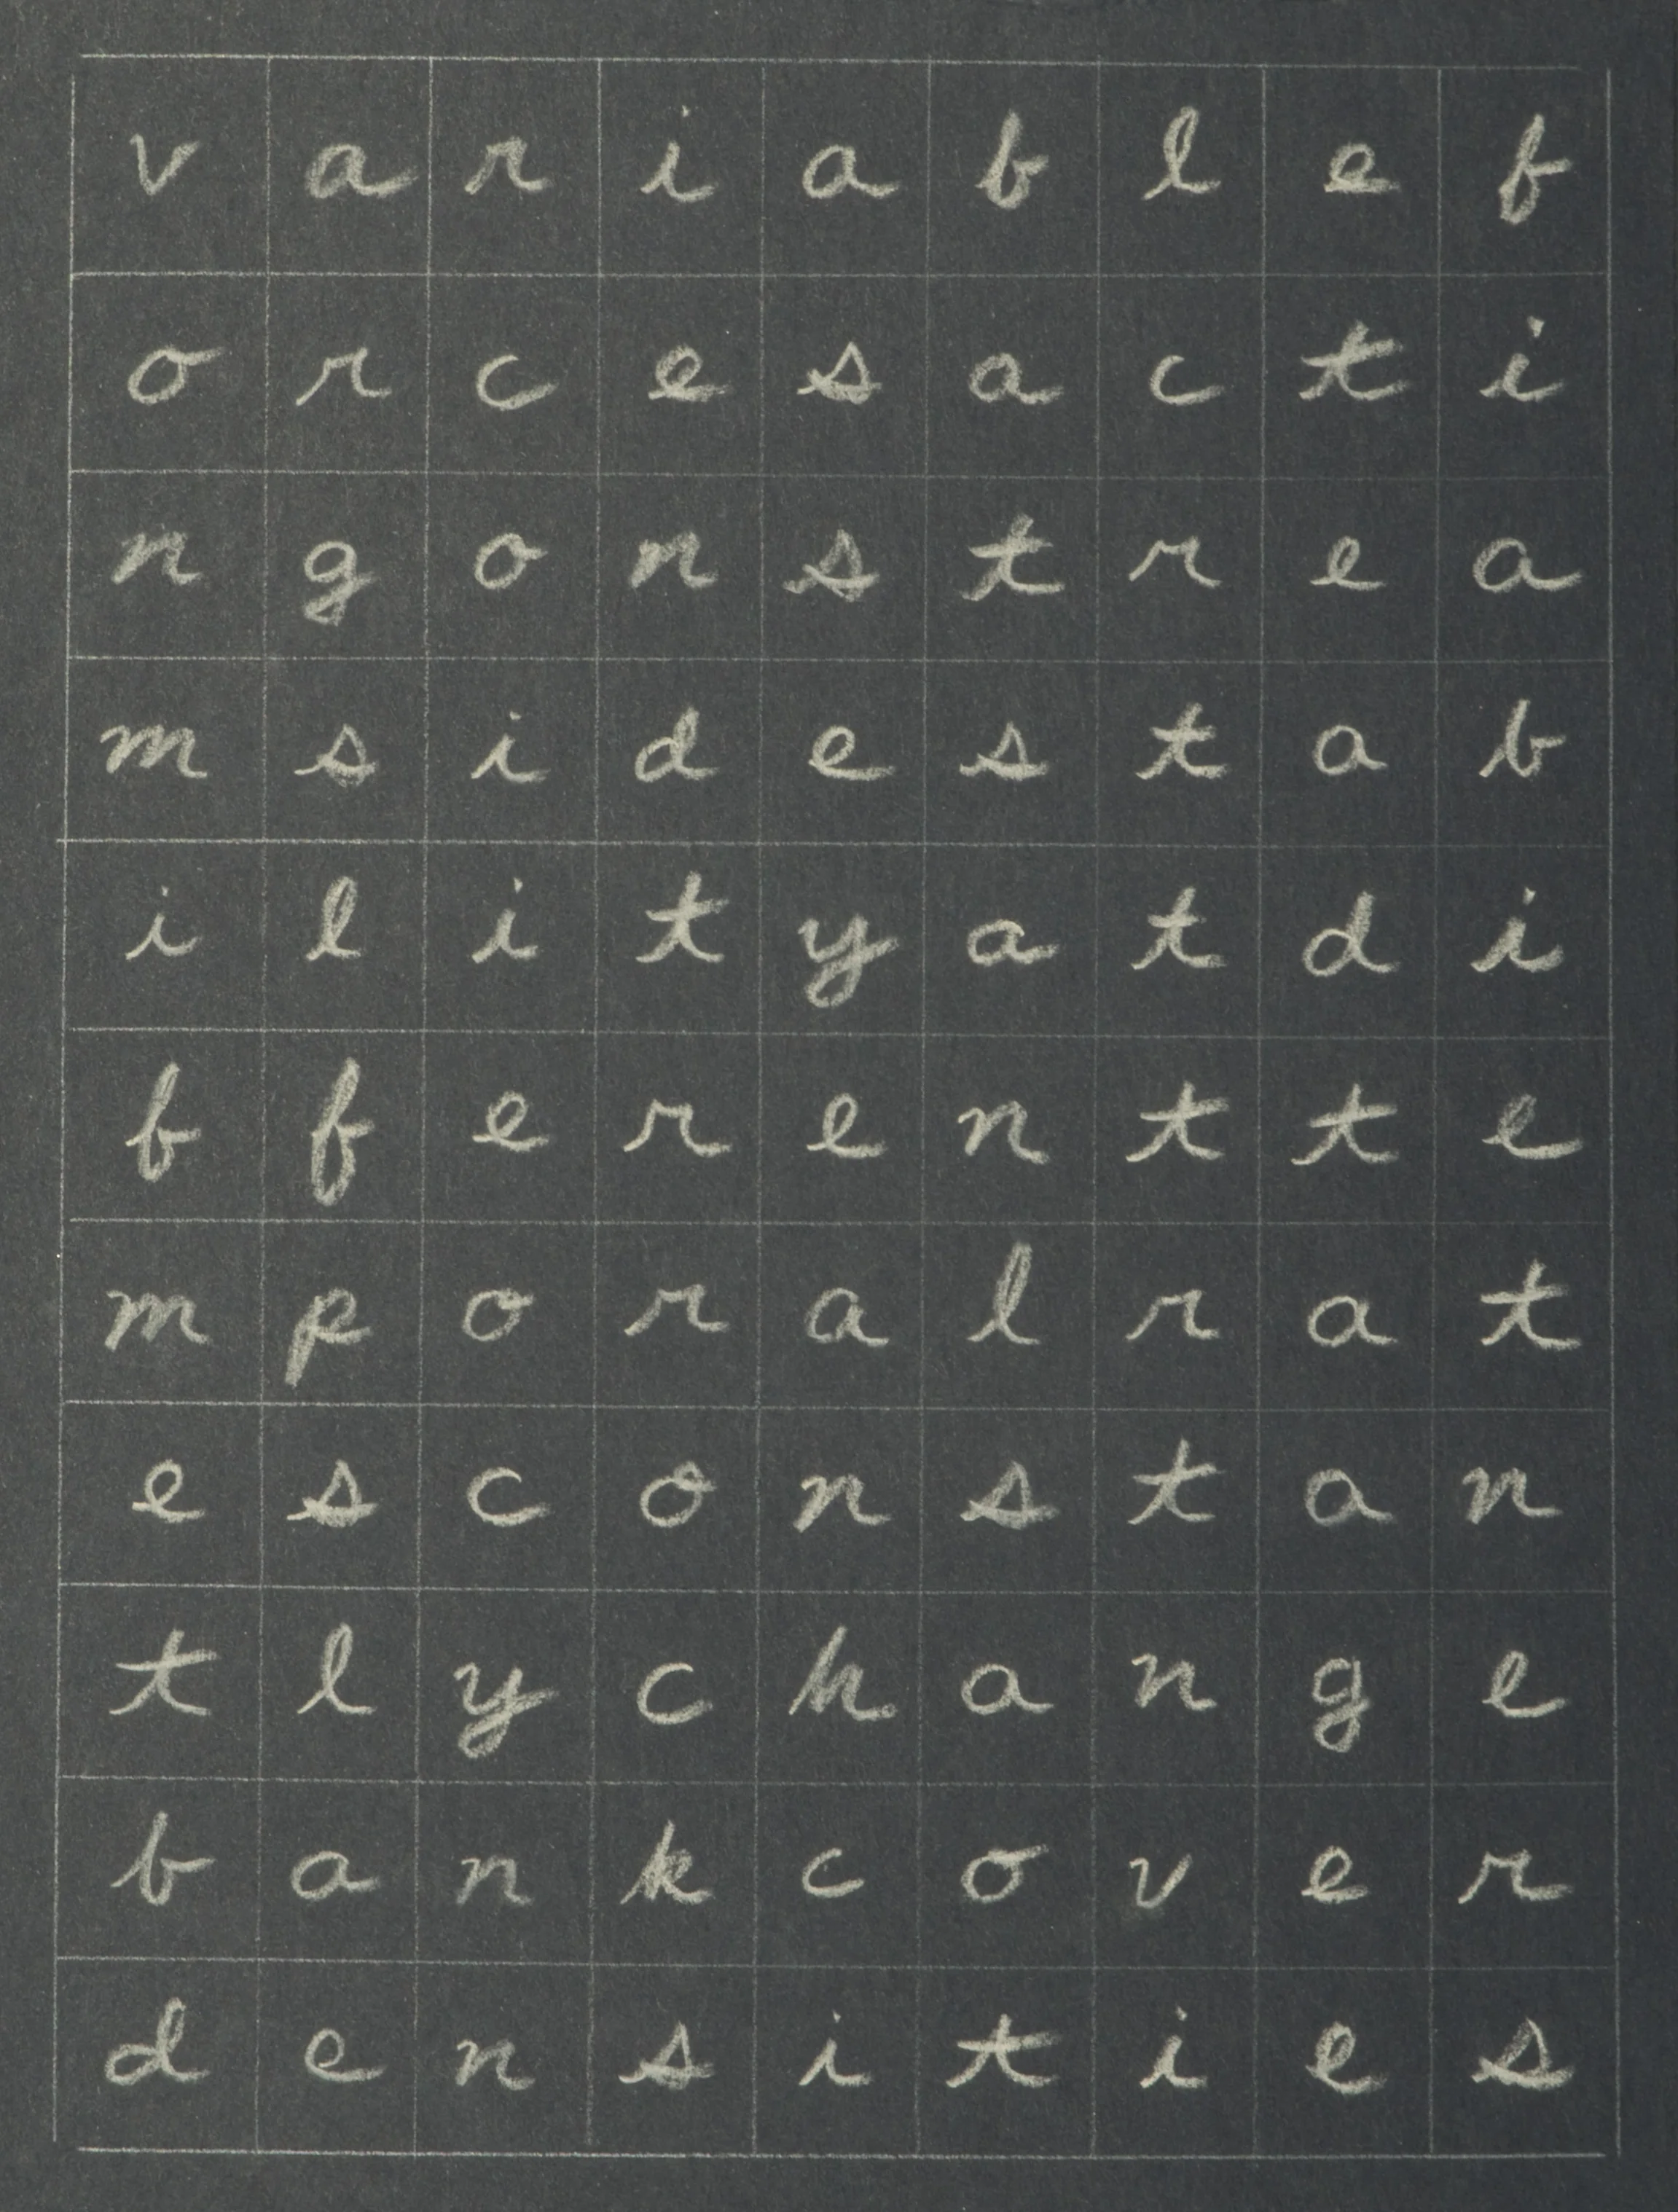 v a r i a b l e f
o r c e s a c t i
n g o n s t r e a
m s i d e s t a b
i l i t y a t d i
f f e r e n t t e
m p o r a l r a t
e s c o n s t a n
t l y c h a n g e
b a n k c o v e r
d e n s i t i e s